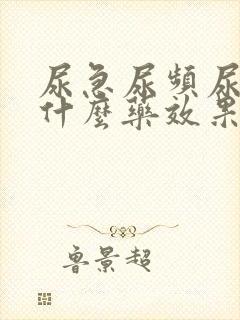 尿急尿頻尿
什麼藥效果
魯景超